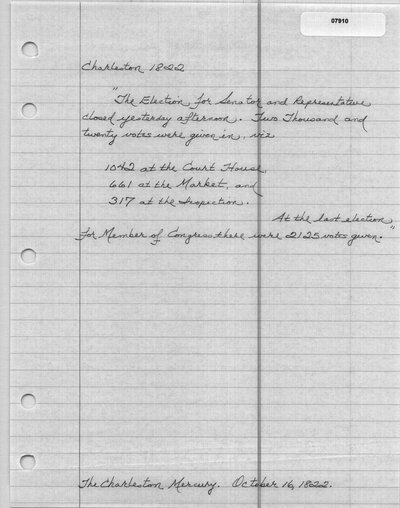 07910
Charleston 1822
"The Election for Senator and Representative
closed yesterday afternoon. Two Thousand and
twenty votes were given in, viz
1042 at the Court House,
661 at the Market, and
317 at the Inspection.
At the last election
for Member of Congress there were 2125 votes given."
The Charleston Mercury. October 16, 1822.